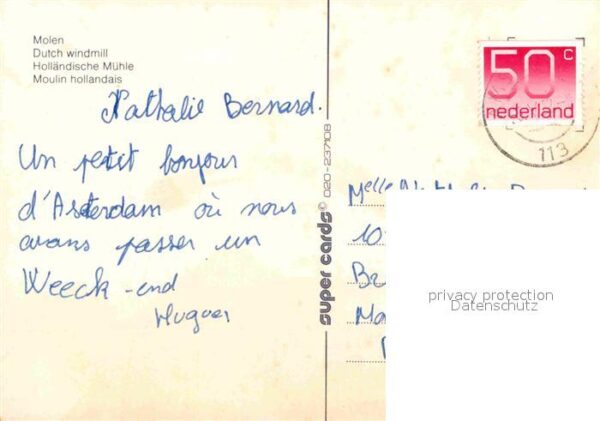 Molen
Dutch windmill
Holländische Mühle
Moulin hollandais
Nathalie Bernard.
Un petit bonjour
d'Asterdam où nous
avons passer un
Weeck-end
Hugues
super cards© 020-237108
50 c
nederland
113
Melle
10
Be
Ma
privacy protection
Datenschutz